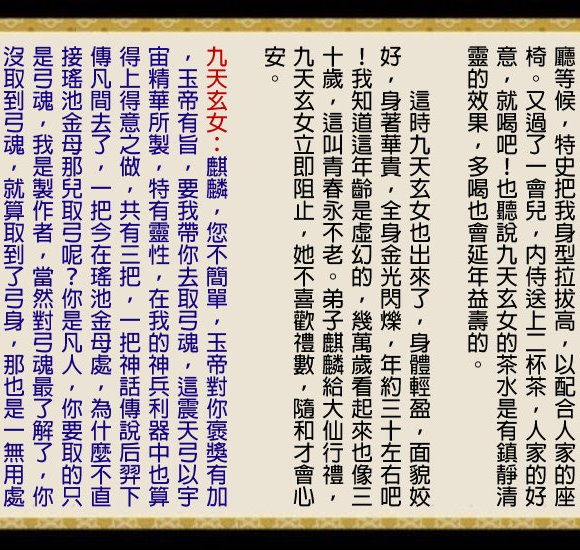 廳等候，特史把我身型拉拔高，以配合人家的座
椅。又過了一會兒，內侍送上二杯茶，人家的好
意，就喝吧！也聽說九天玄女的茶水是有鎮靜清
靈的效果，多喝也會延年益壽的。
這時九天玄女也出來了，身體輕盈，面貌姣
好，身著華貴，全身金光閃爍，年約三十左右吧
！我知道這年齡是虛幻的，幾萬歲看起來也像三
十歲，這叫青春永不老。弟子麒麟給大仙行禮，
九天玄女立即阻止，她不喜歡禮數，隨和才會心
安。
九天玄女：麒麟，您不簡單，玉帝對你褒獎有加
，玉帝有旨，要我帶你去取弓魂，這震天弓以宇
宙精華所製，特有靈性，在我的神兵利器中也算
得上得意之做，共有三把，一把神話傳說后羿下
傳凡間去了，一把今在瑤池金母處，為什麼不直
接瑤池金母那兒取弓呢？你是凡人，你要取的只
是弓魂，我是製作者，當然對弓魂最了解了，你
沒取到弓魂，就算取到了弓身，那也是一無用處